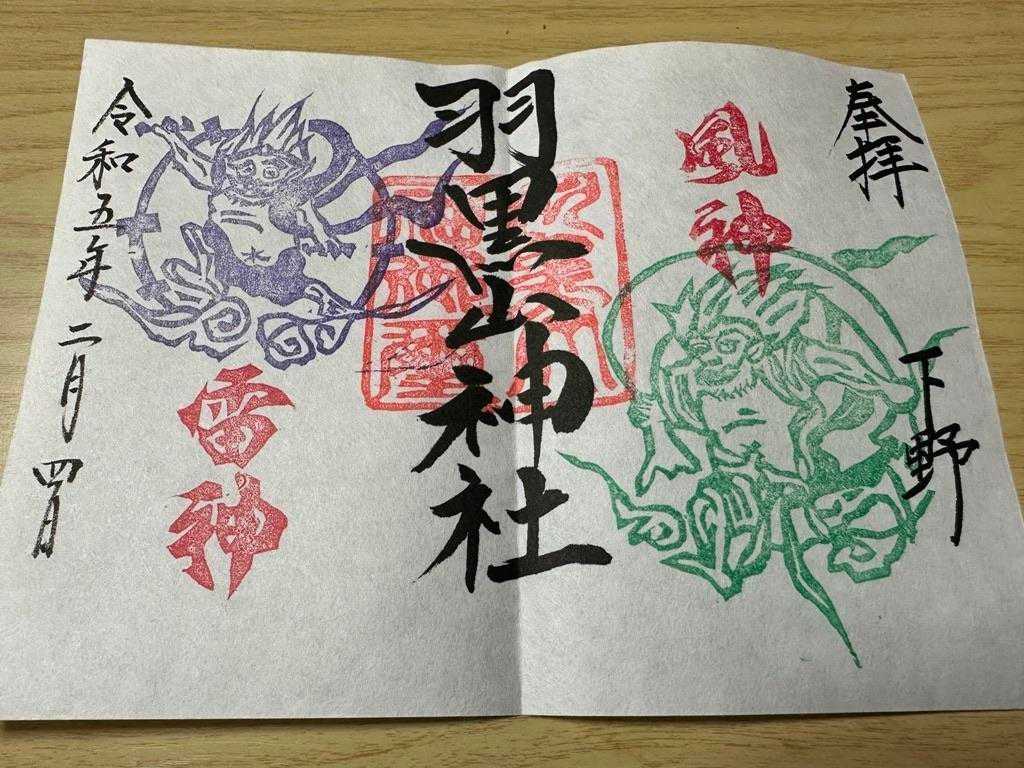 奉拝
下野
風神
羽黒山神社
雷神
令和五年 二月 四日